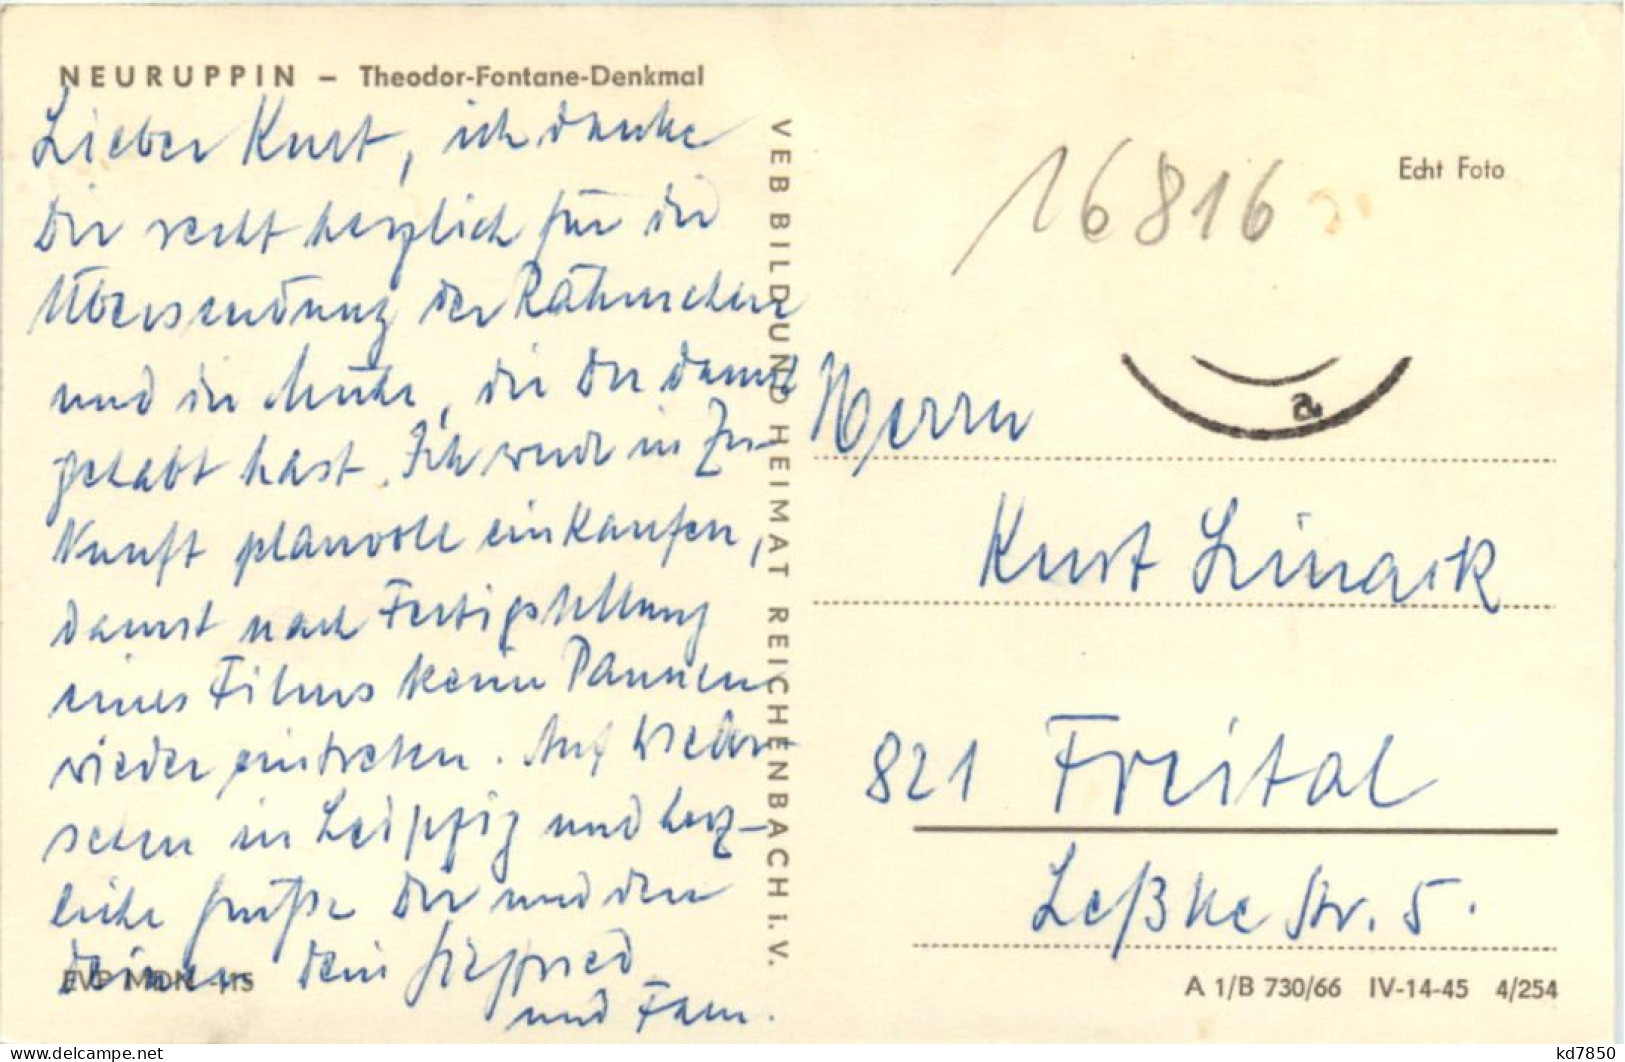 NEURUPPIN – Theodor-Fontane-Denkmal
Lieber Kurt, ich danke
Dir recht herzlich für die
Übersendung der Rähmchen
und die Mühe, die Du damit
gehabt hast. Ich werde in Zu-
kunft planvoll einkaufen,
damit nach Fertigstellung
eines Films keine Pannen
wieder eintreten. Auf Wieder-
sehen in Leipzig und herz-
liche Grüße Dir und den
Deinen Dein Siegfried
und Fam.
EVP MDN -,15
VEB BILD UND HEIMAT REICHENBACH I. V.
16816
Echt Foto
a
Herrn
Kurt
821 Freital
Leßke Str. 5.
A 1/B 730/66 IV-14-45 4/254
https://www.delcampe.net
kd7850